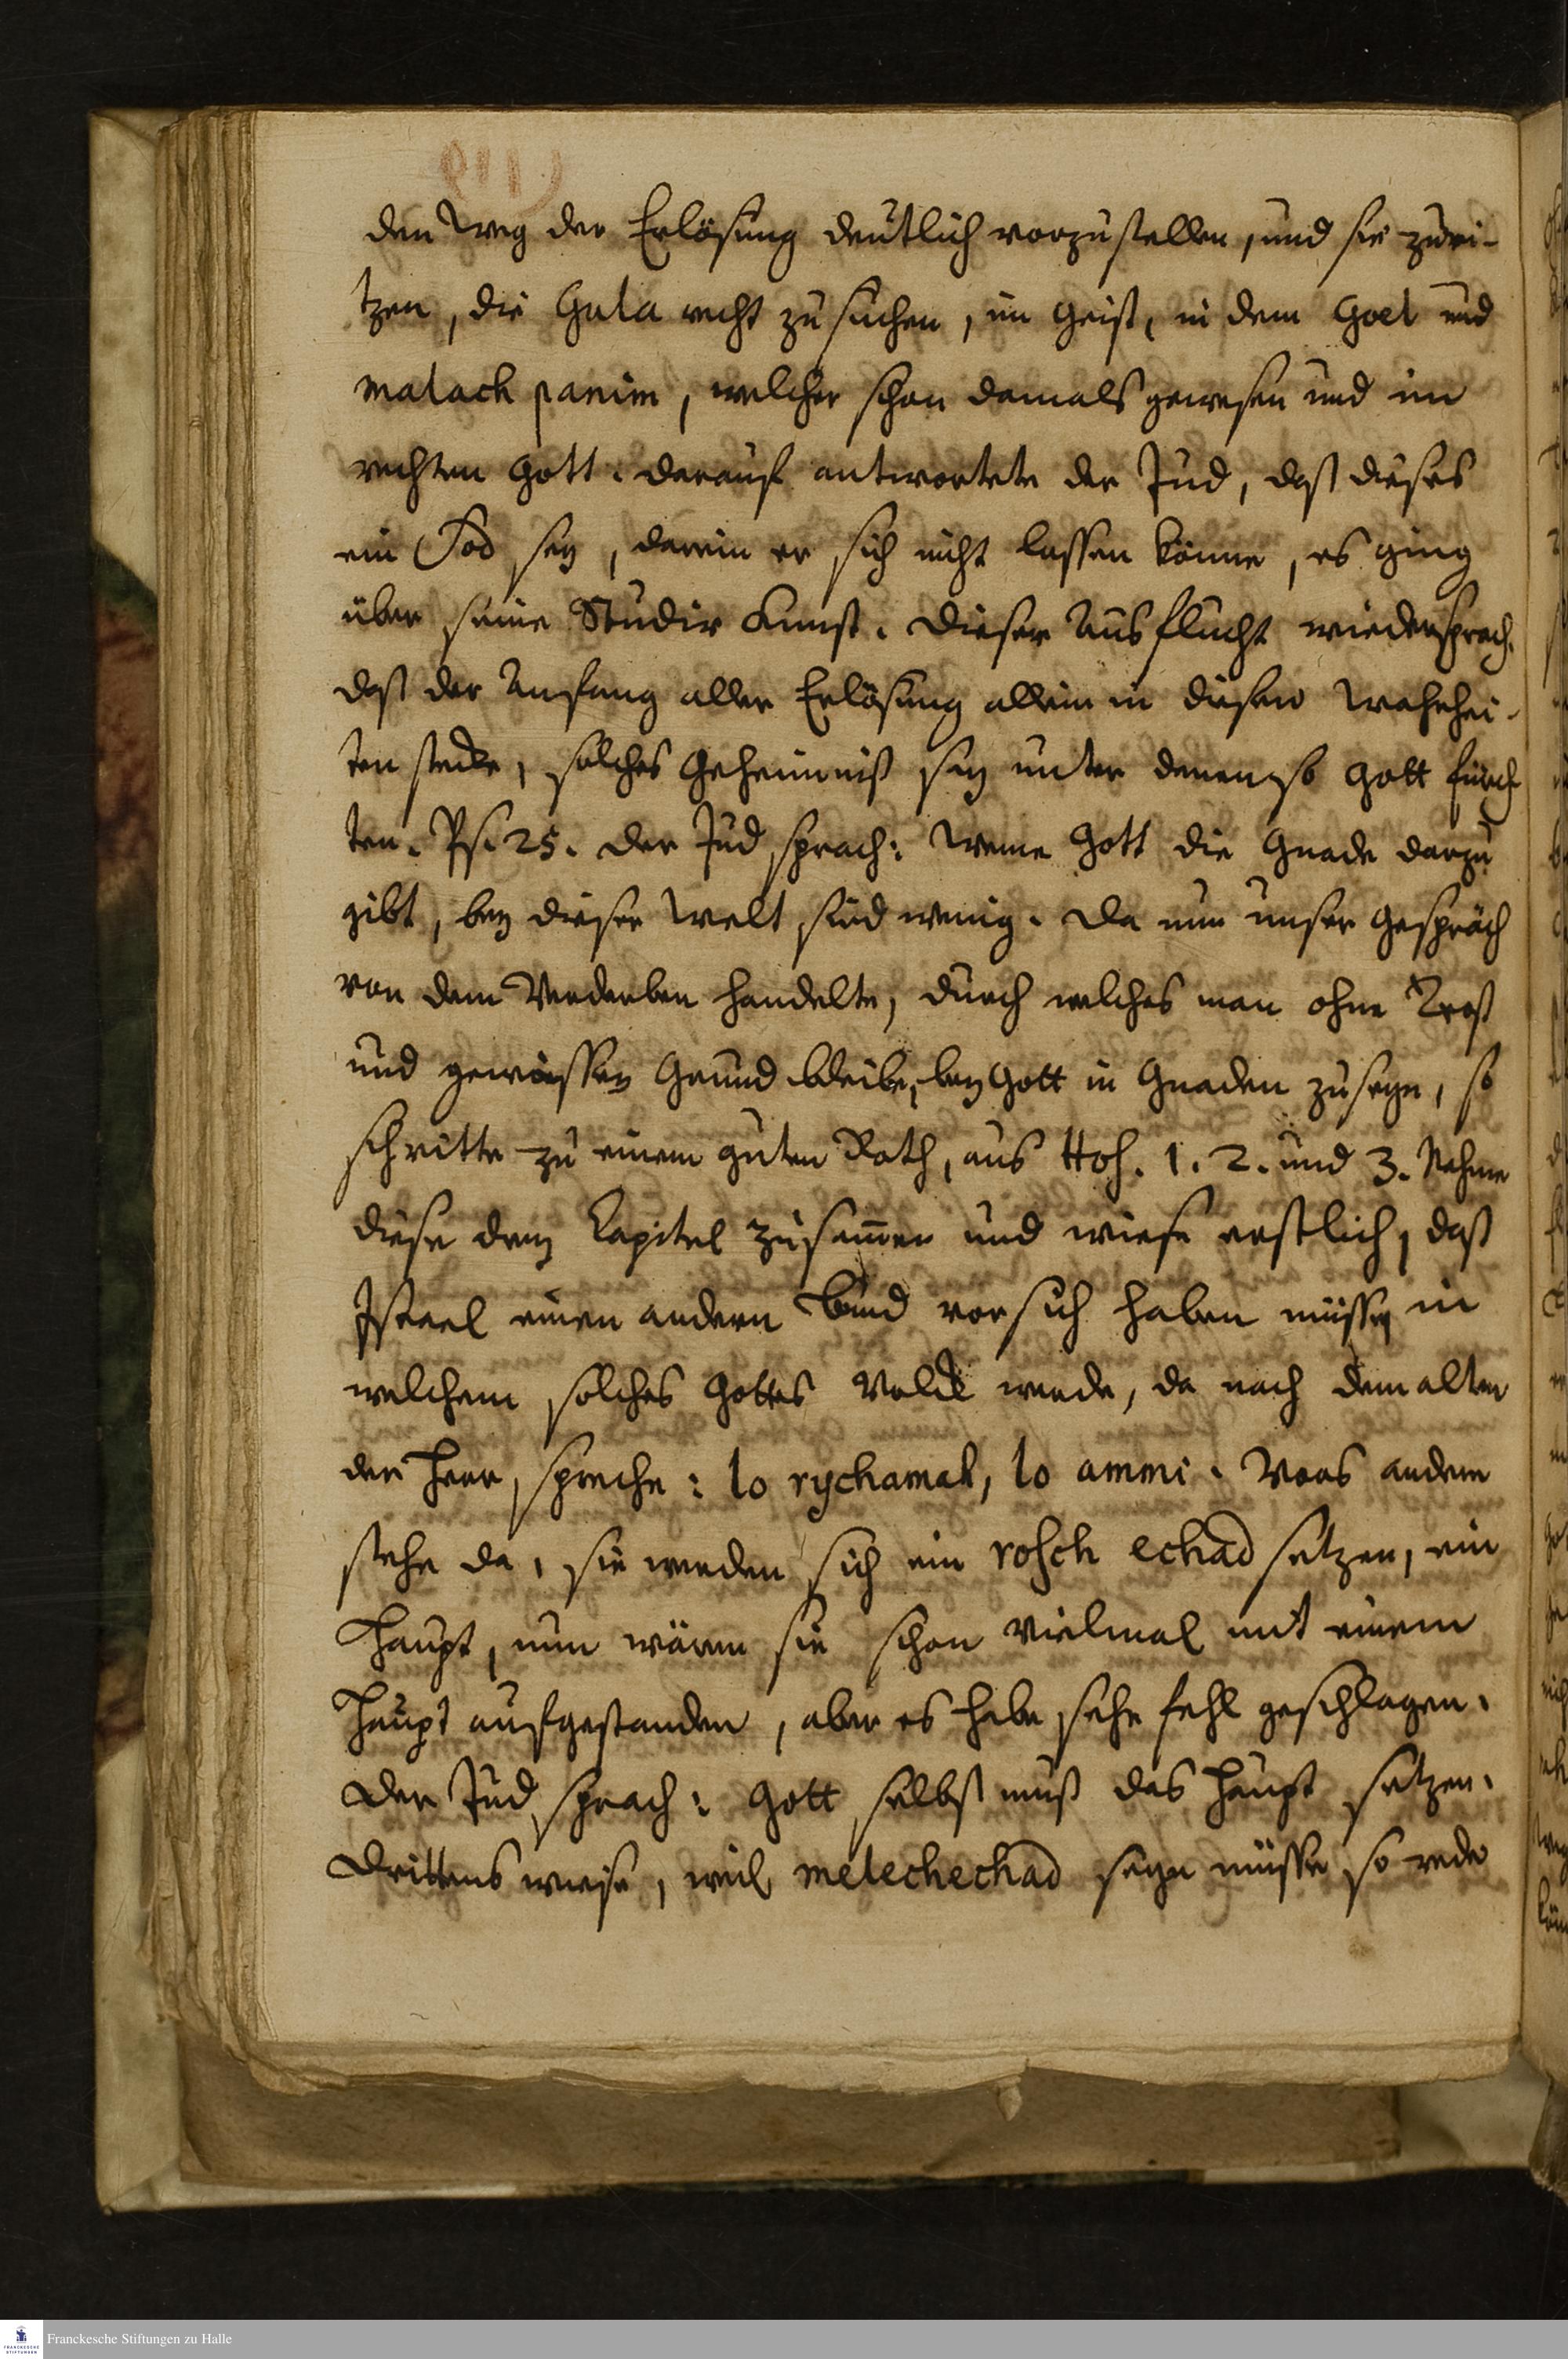 den Weg der Erlösung deutlich vorzustellen, und sie zu rei-
tzen, die Gula recht zu suchen, im Geist, in dem Goel und
malach panim, welcher schon damals gewesen und im
rechten Gott. darauf antwortete der Jud, daß dieses
ein Sod sey, darein er sich nicht lassen könne, es ging
über seine Studir Kunst. Dieser Ausflucht wiedersprach.
daß der Anfang aller Erlösung allein in diesen Wahrhei-
ten stecke, solches Geheimniß sey unter denen so Gott fürch
ten. Ps. 25. der Jud sprach: Wenn Gott die Gnade darzu
gibt, bey dieser Welt sind wenig. Da nun unser Gespräch
von dem Verderben handelte, durch welches man ohne Trost
und gewissen Grund bleibe, bey Gott in Gnaden zu seyn, so
schritte zu einem guten Rath, aus Hos. 1. 2. und 3. Nahme
diese drey Capitel zusam̄en und wiese erstlich, daß
Israel einen andern Bund vor sich haben müsse in
welchem solches Gottes Volck werde, da nach dem alten
der Herr spreche: lo rychamah, lo ammi. Vors andere
stehe da, sie werden sich ein rosch echad setzen, ein
Haupt, nun wären sie schon vielmal mit einem
Haupt aufgestanden, aber es habe sehr fehl geschlagen.
Der Jud sprach: Gott selbst muß das Haupt setzen.
Drittens wiese, weil melech echad seyn müsse so rede
Franckesche Stiftungen zu Halle